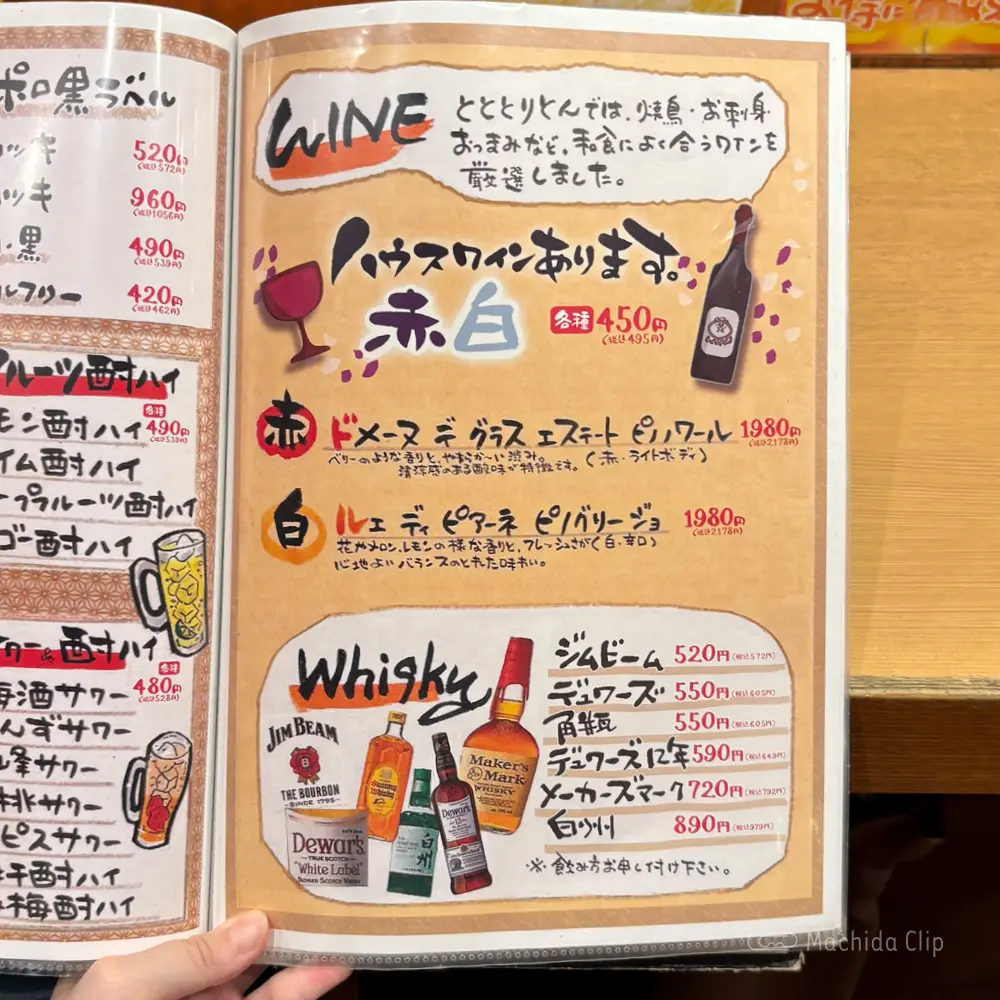 ポロ黒ラベル
ッキ 520円
(税込572円)
ッキ 960円
(税込1056円)
・黒 490円
(税込539円)
ルフリー 420円
(税込462円)
フルーツ酎ハイ
各種
モン酎ハイ 490円
(税込539円)
イム酎ハイ
ープフルーツ酎ハイ
ゴー酎ハイ
ワー&酎ハイ
各種
梅酒サワー 480円
(税込528円)
んずサワー
峰サワー
桃サワー
ピスサワー
酎ハイ
梅酎ハイ
WINE
とととりとんでは、焼鳥・お刺身
おつまみなど、和食によく合うワインを
厳選しました。
ハウスワインあります。
赤 白 各種 450円
(税込495円)
赤 ドメーヌ デ グラス エステート ピノノワール 1980円
(税込2178円)
ベリーのような香りと、やわらか〜い渋み。
清涼感のある酸味が特徴です。 (赤・ライトボディ)
白 ルエ ディ ピアーネ ピノグリージョ 1980円
(税込2178円)
花やメロン、レモンの様な香りと、フレッシュさが (白・辛口)
心地よいバランスのとれた味わい。
Whisky
JIM BEAM
B
THE BOURBON
SINCE 1795
Dewar's
TRUE SCOTCH
"White Label"
BLENDED SCOTCH WHISKY
白州
Dewar's
12
Maker's
Mark
WHISKY
ジムビーム 520円(税込572円)
デュワーズ 550円(税込605円)
角瓶 550円(税込605円)
デュワーズ12年 590円(税込649円)
メーカーズマーク 720円(税込792円)
白州 890円(税込979円)
※飲み方お申し付け下さい。
Machida Clip